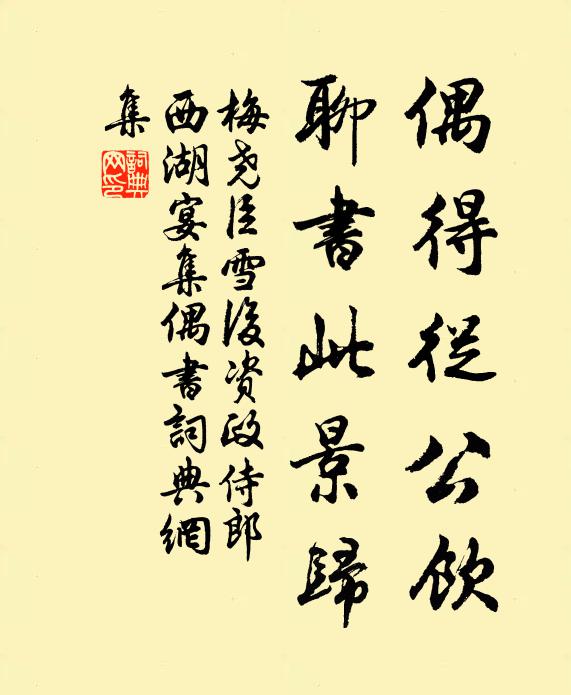 偶得從公飲
聊書此景歸
梅堯臣雪後資政侍郎
西湖宴集偶書詞典網
集
詞典
网印